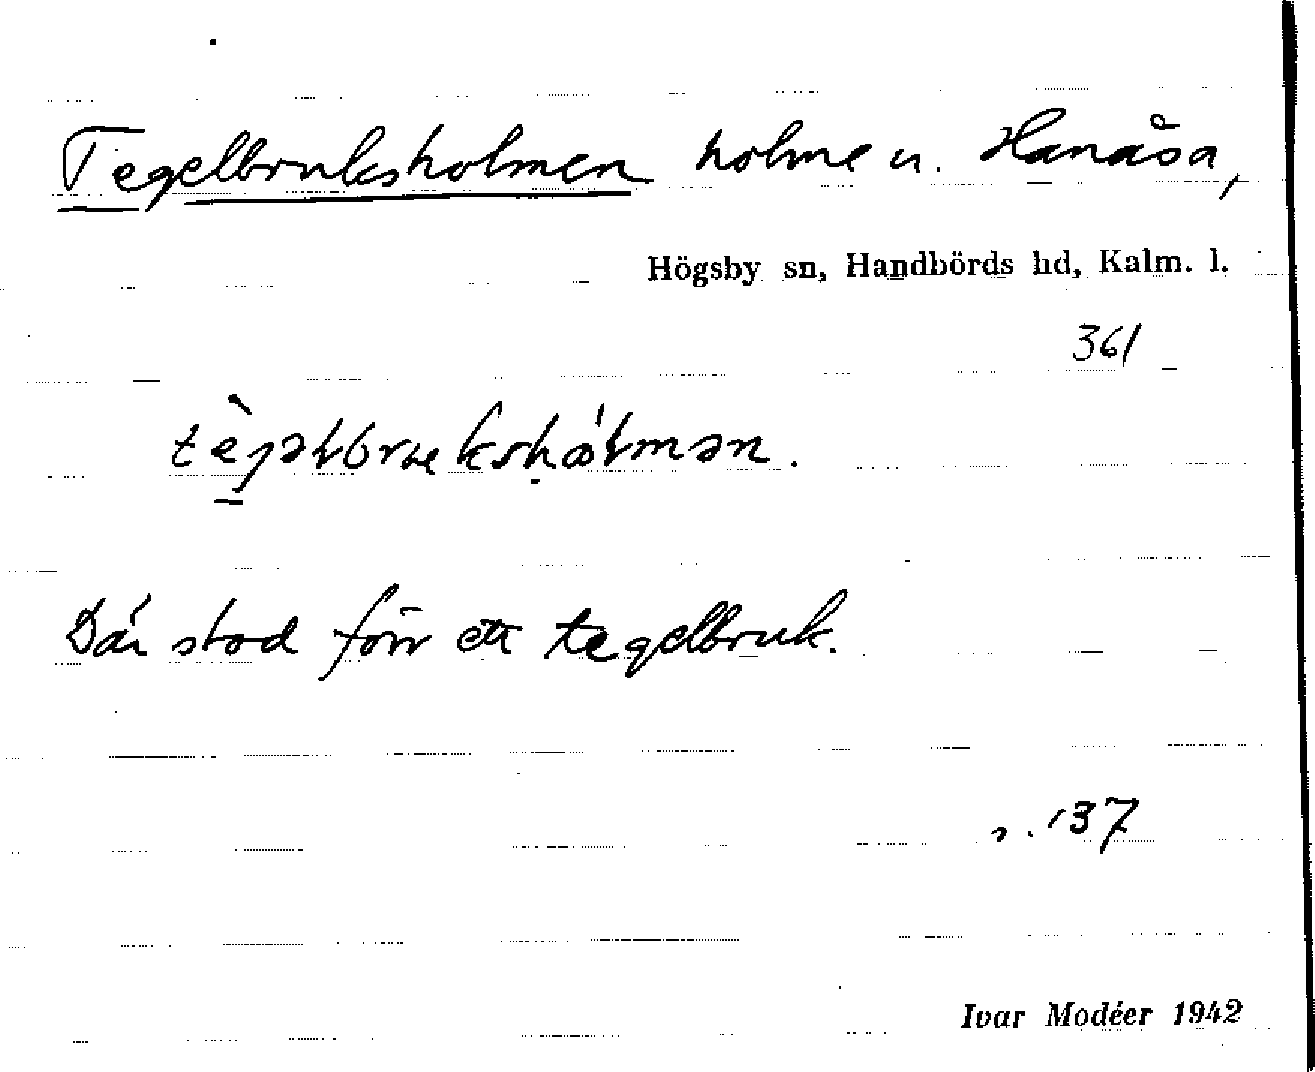 Tegelbruksholmen holme u. Hanåsa,
Högsby sn, Handbörds hd, Kalm. l.
361
Där stod förr ett tegelbruk.
s. 137
Ivar Modéer 1942